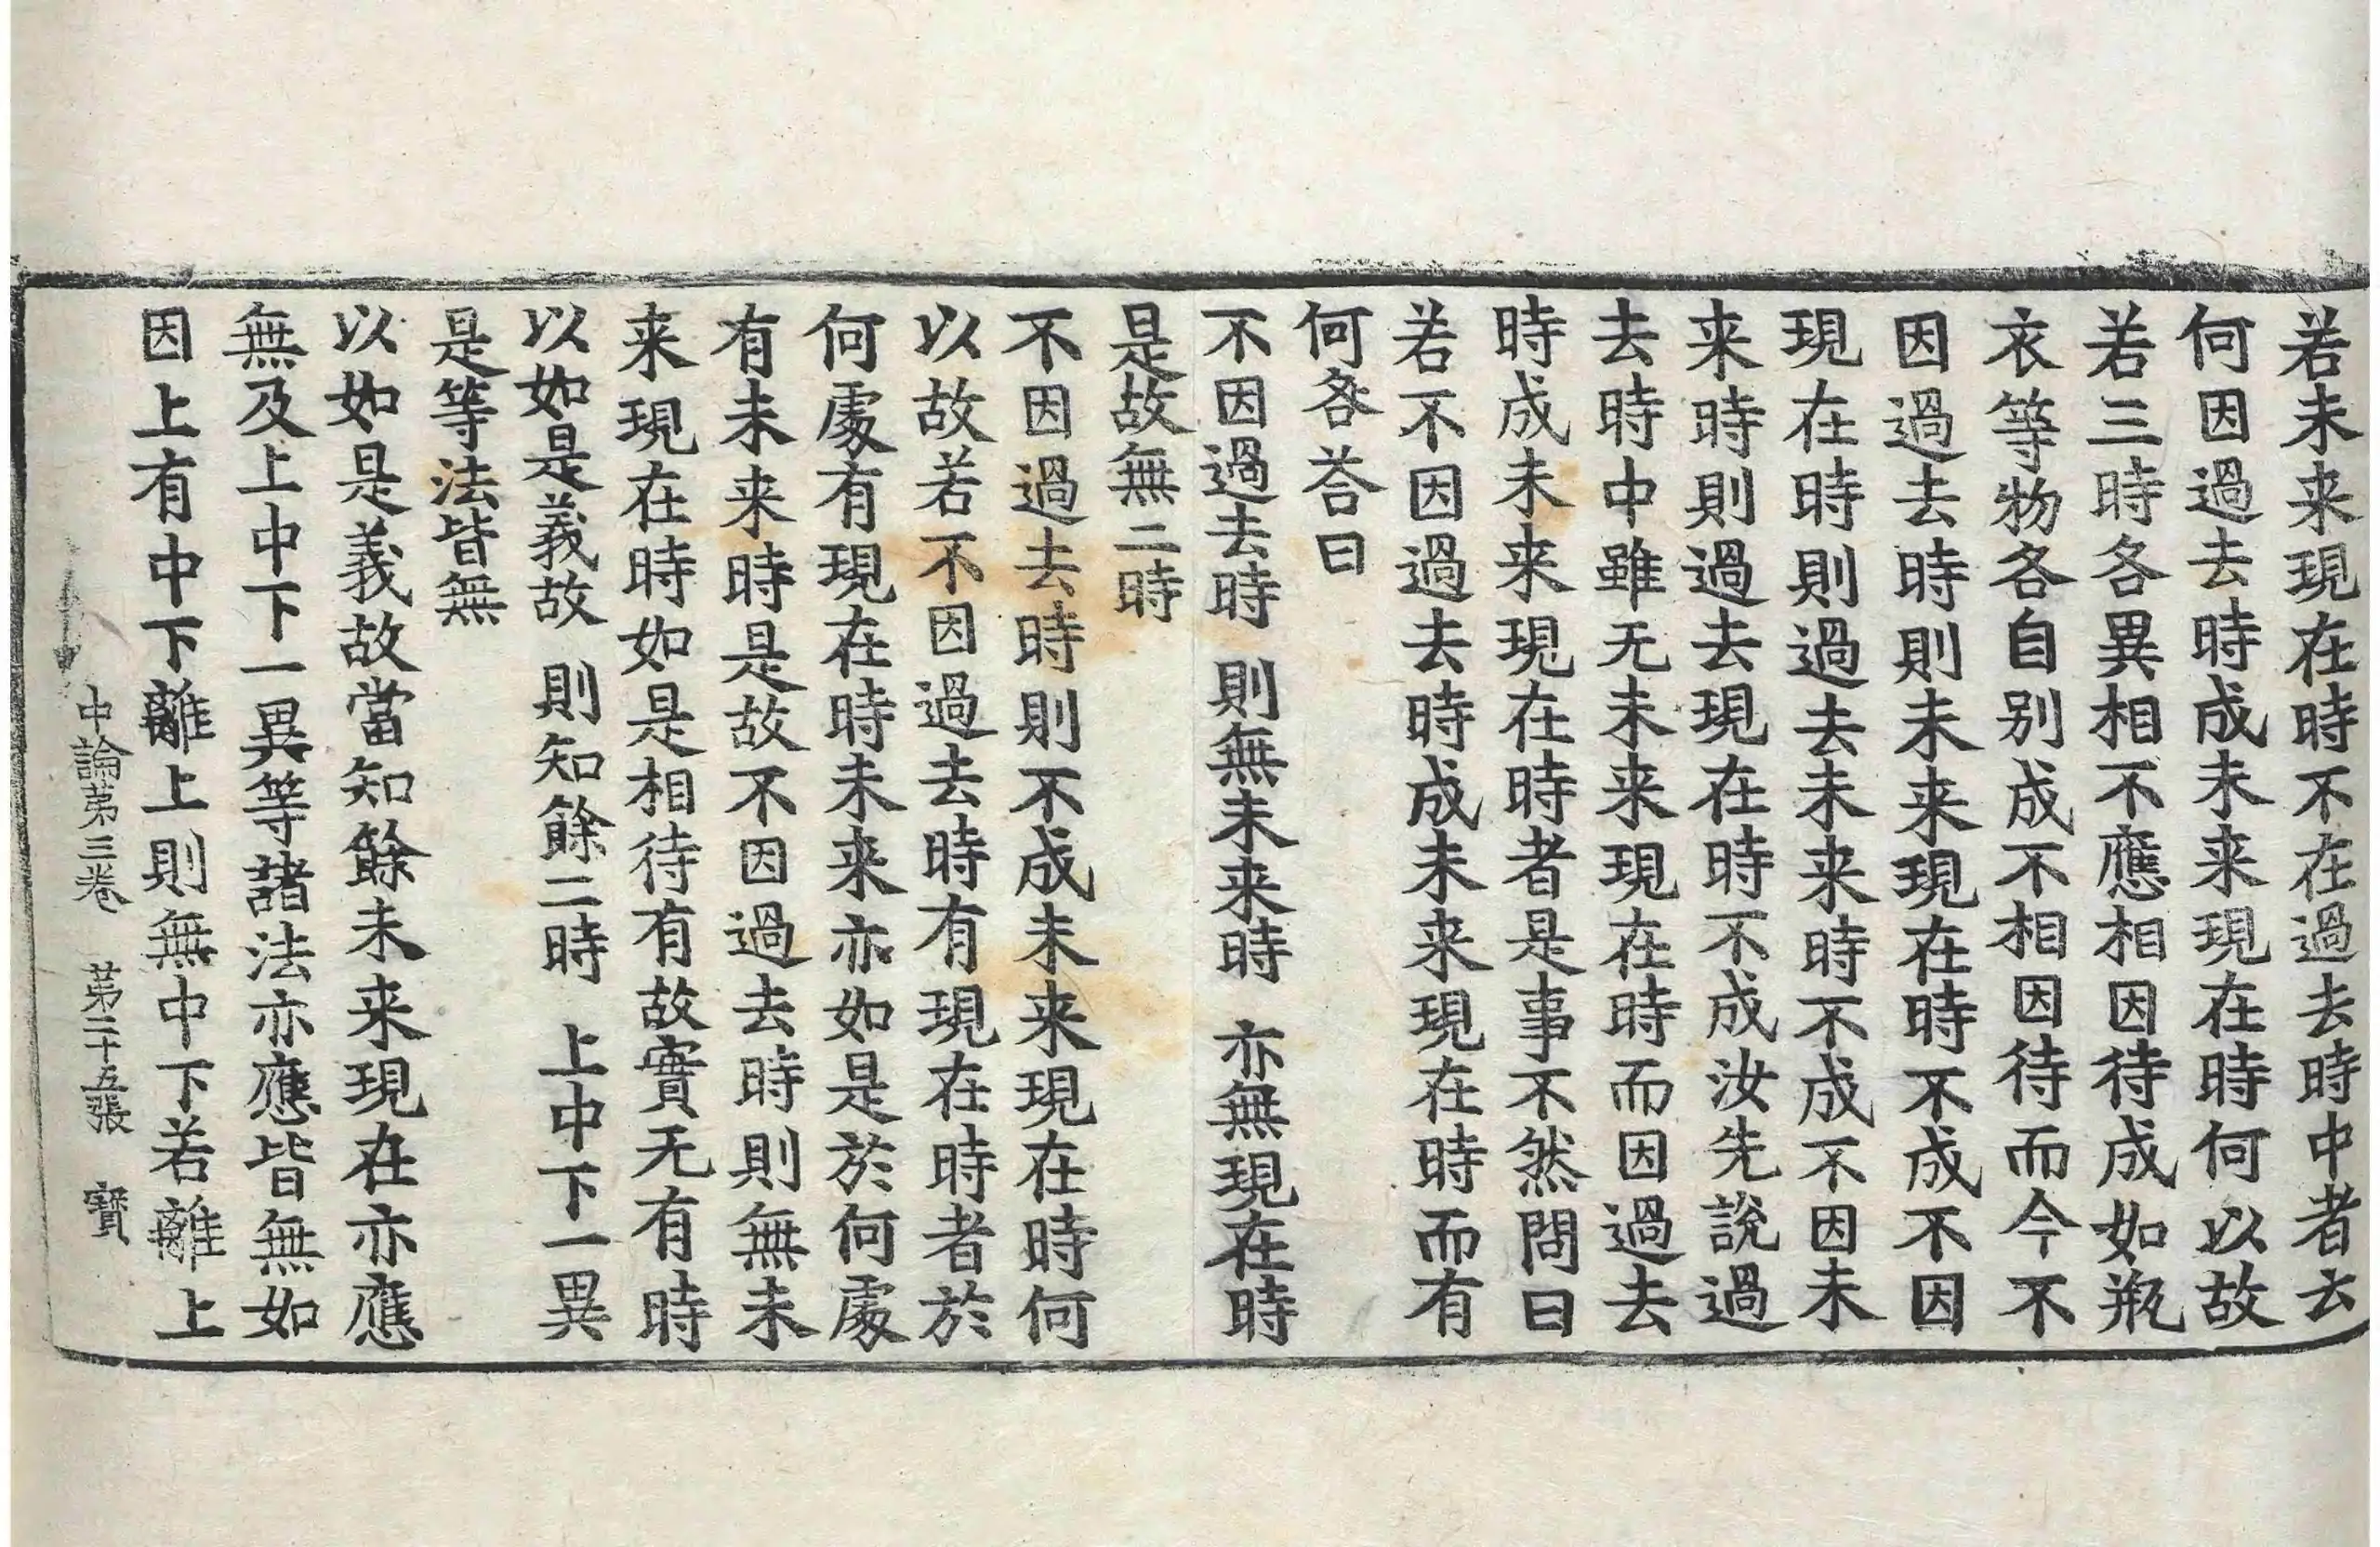 若未来現在時不在過去時中者云
何因過去時成未来現在時何以故
若三時各異相不應相因待成如瓶
衣等物各自别成不相因待而今不
因過去時則未来現在時不成不因
現在時則過去未来時不成不因未
来時則過去現在時不成汝先說過
去時中雖无未来現在時而因過去
時成未来現在時者是事不然問曰
若不因過去時成未来現在時而有
何咎荅曰
不因過去時　則無未来時　亦無現在時
是故無二時
不因過去時則不成未来現在時何
以故若不因過去時有現在時者於
何處有現在時未来亦如是於何處
有未来時是故不因過去時則無未
来現在時如是相待有故實无有時
以如是義故　則知餘二時　上中下一異
是等法皆無
以如是義故當知餘未来現在亦應
無及上中下一異等諸法亦應皆無如
因上有中下離上則無中下若離上
中論第三卷　第二十五張　寶